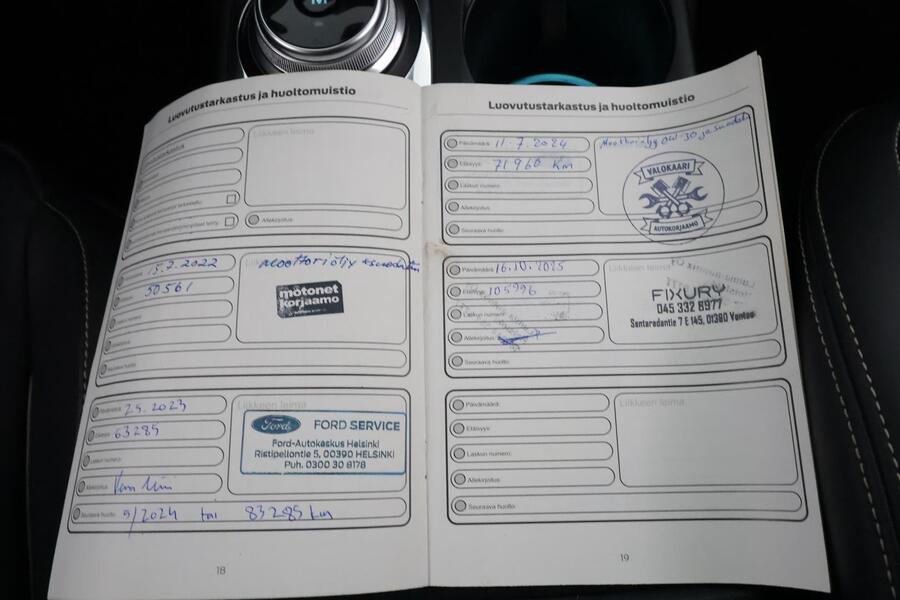 M
Luovutustarkastus ja huoltomuistio
Liikkeen leima
Allekirjoitus:
15.2.2022
Moottoriöljy + suodatin
50561
mötonet
korjaamo
Seuraava huolto:
Päivämäärä: 2.5.2023
Liikkeen leima
63285
Ford
FORD SERVICE
Ford-Autokaskus Helsinki
Ristipellontie 5, 00390 HELSINKI
Puh. 0300 30 8178
Laskun numero:
Allekirjoitus:
Seuraava huolto: 5/2024 tai 83285 km
18
Luovutustarkastus ja huoltomuistio
Päivämäärä: 11.7.2024
Moottoriöljy 0W-30 ja suodatin
Etäisyys: 71960 Km
VALOKAARI
AUTOKORJAAMO
Laskun numero:
Allekirjoitus:
Seuraava huolto:
Päivämäärä: 16.10.2025
Liikkeen leima
Etäisyys: 105996
FIXURY
045 332 8977
Santaradantie 7 E 145, 01380 Vantaa
Laskun numero:
Allekirjoitus:
Seuraava huolto:
Päivämäärä:
Liikkeen leima
Etäisyys:
Laskun numero:
Allekirjoitus:
Seuraava huolto:
19